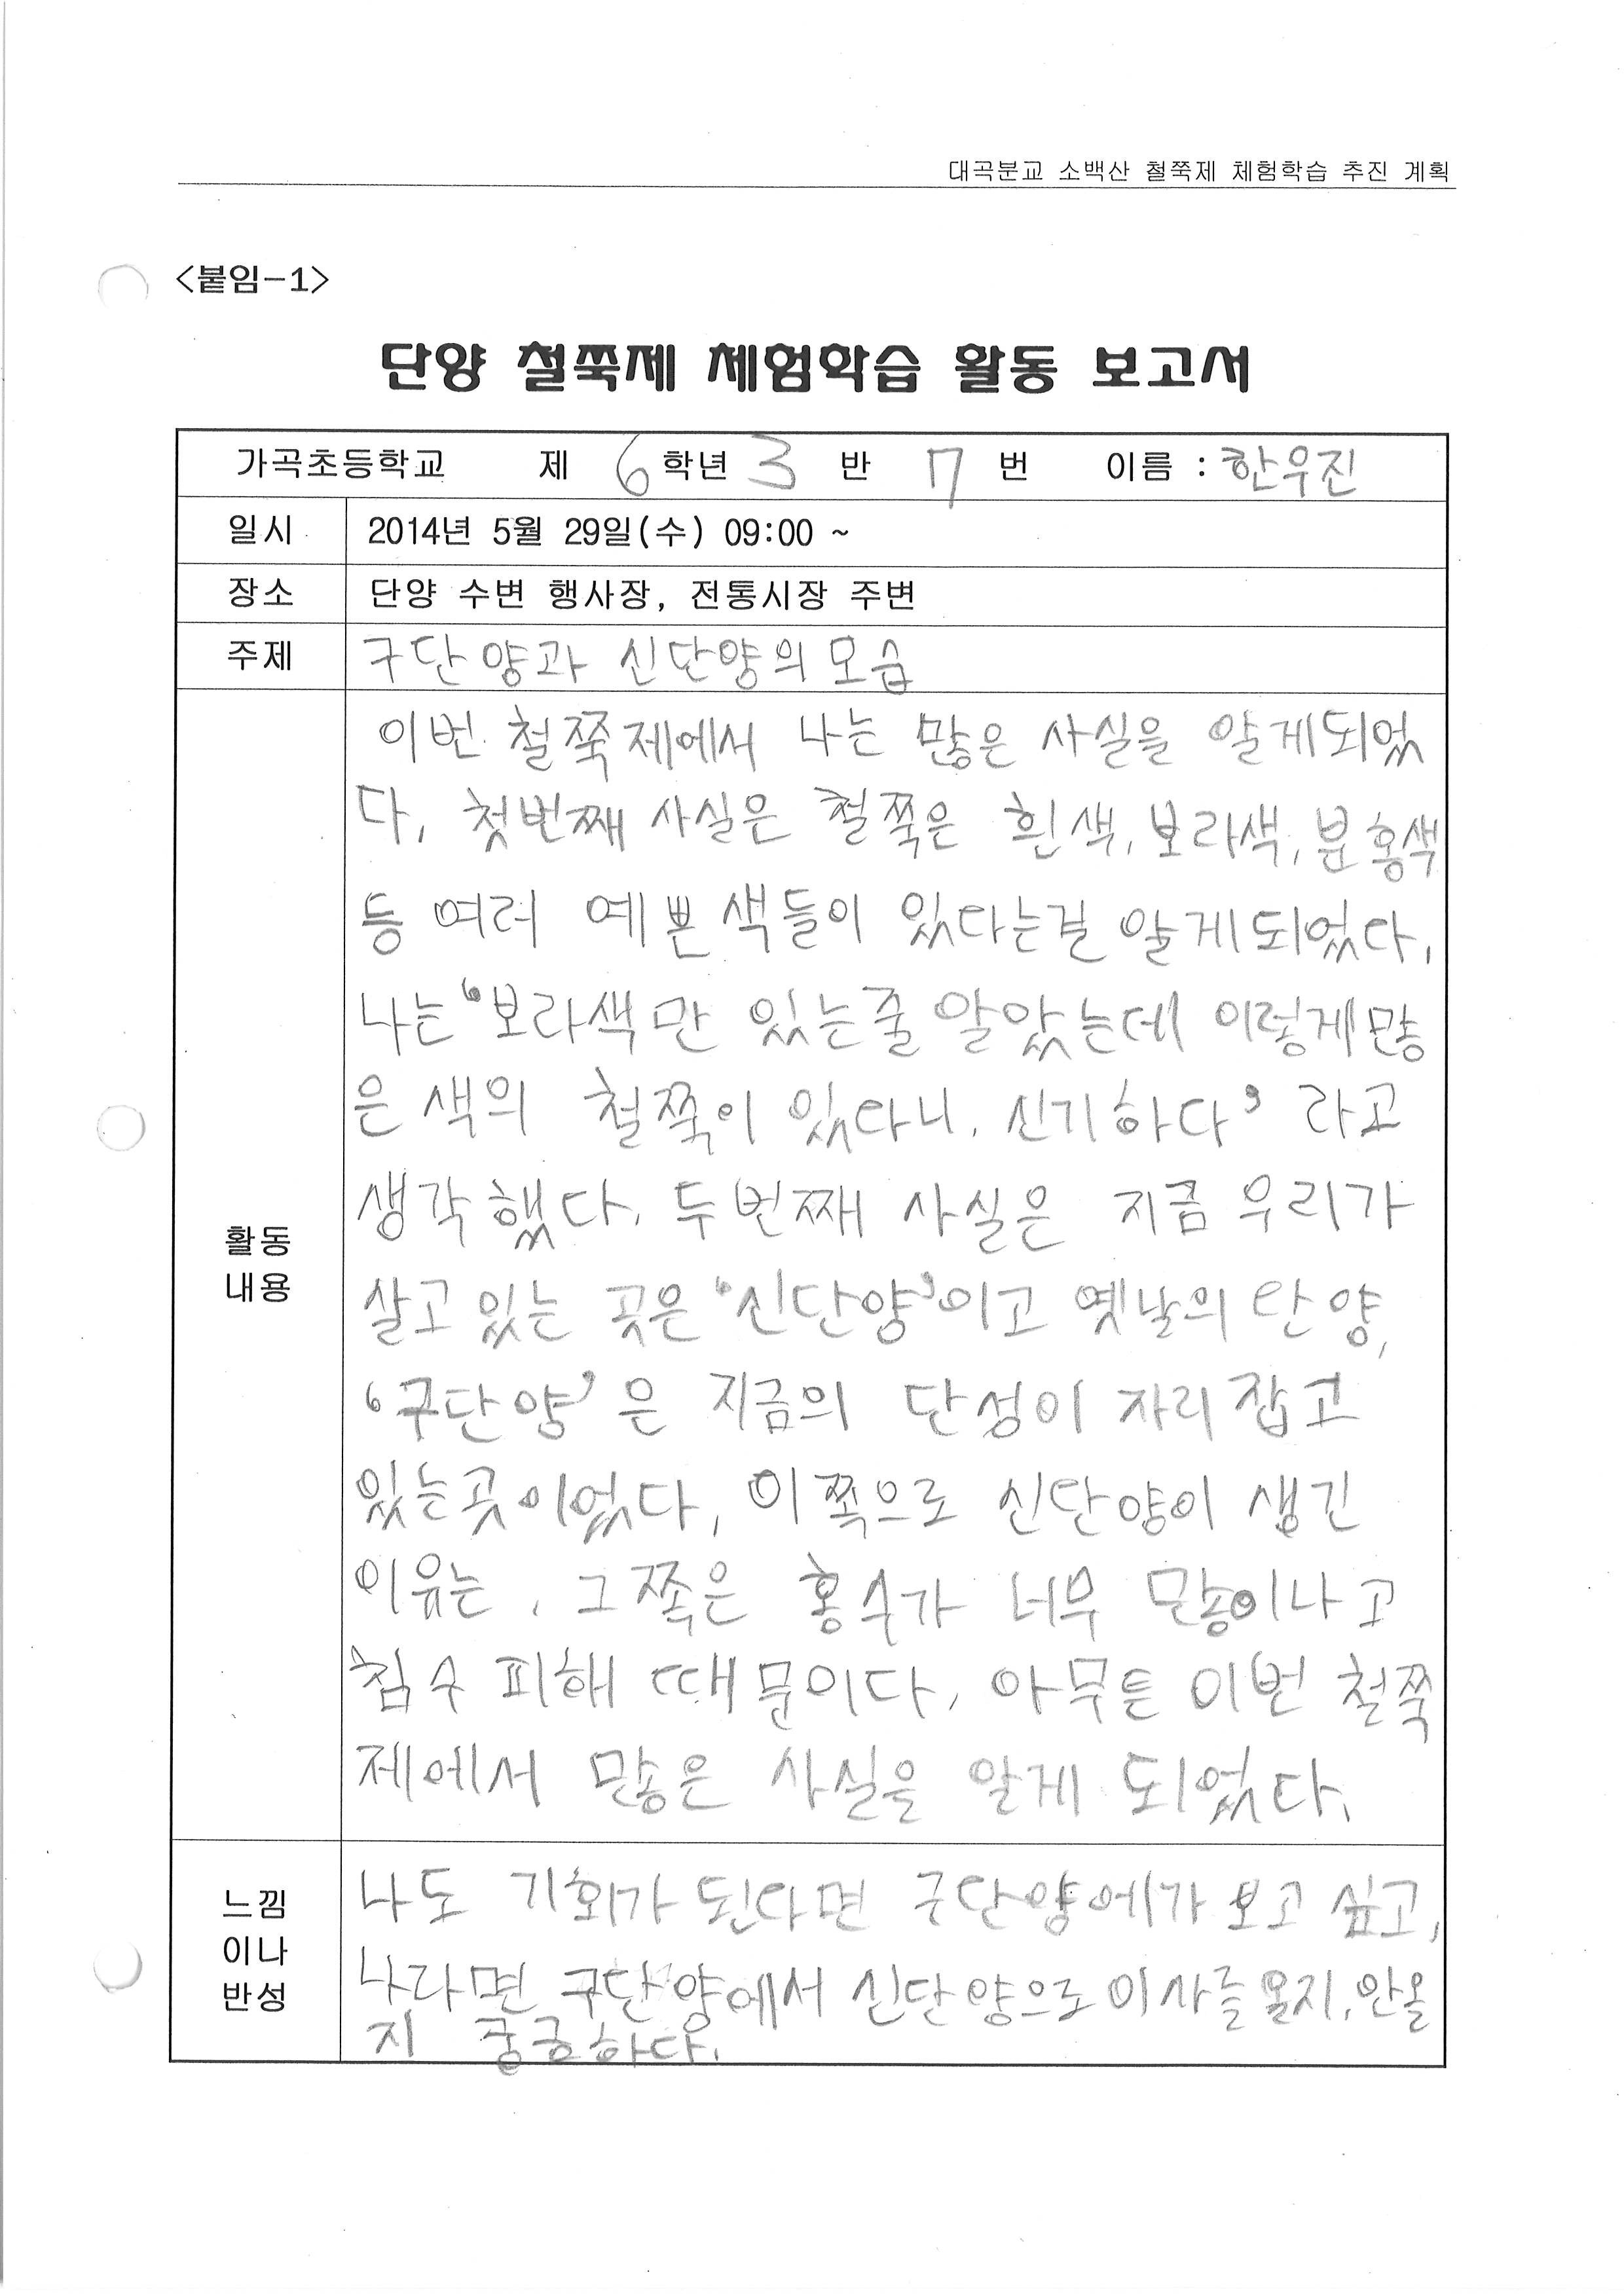 대곡분교 소백산 철쭉제 체험학습 추진 계획
<붙임-1>
단양 철쭉제 체험학습 활동 보고서
가곡초등학교 제 6학년 3 반 7 번 이름 : 한우진
일시 2014년 5월 29일(수) 09:00 ~
장소 단양 수변 행사장, 전통시장 주변
주제 구단양과 신단양의 모습
이번 철쭉제에서 나는 많은 사실을 알게되었
다, 첫번째 사실은 철쭉은 흰색, 보라색, 분홍색
등 여러 예쁜 색들이 있다는걸 알게되었다,
나는 '보라색만 있는줄 알았는데 이렇게 많
은 색의 철쭉이 있다니, 신기하다' 라고
생각했다, 두번째 사실은 지금 우리가
살고 있는 곳은 '신단양'이고 옛날의 단양,
'구단양'은 지금의 단성이 자리 잡고
있는곳이었다, 이쪽으로 신단양이 생긴
이유는, 그쪽은 홍수가 너무 많이나고
침수 피해 때문이다, 아무튼 이번 철쭉
제에서 많은 사실을 알게 되었다,
활동
내용
나도 기회가 된다면 구단양에가 보고 싶고,
나라면 구단양에서 신단양으로 이사를 올지, 안올
지 궁금하다,
느낌
이나
반성